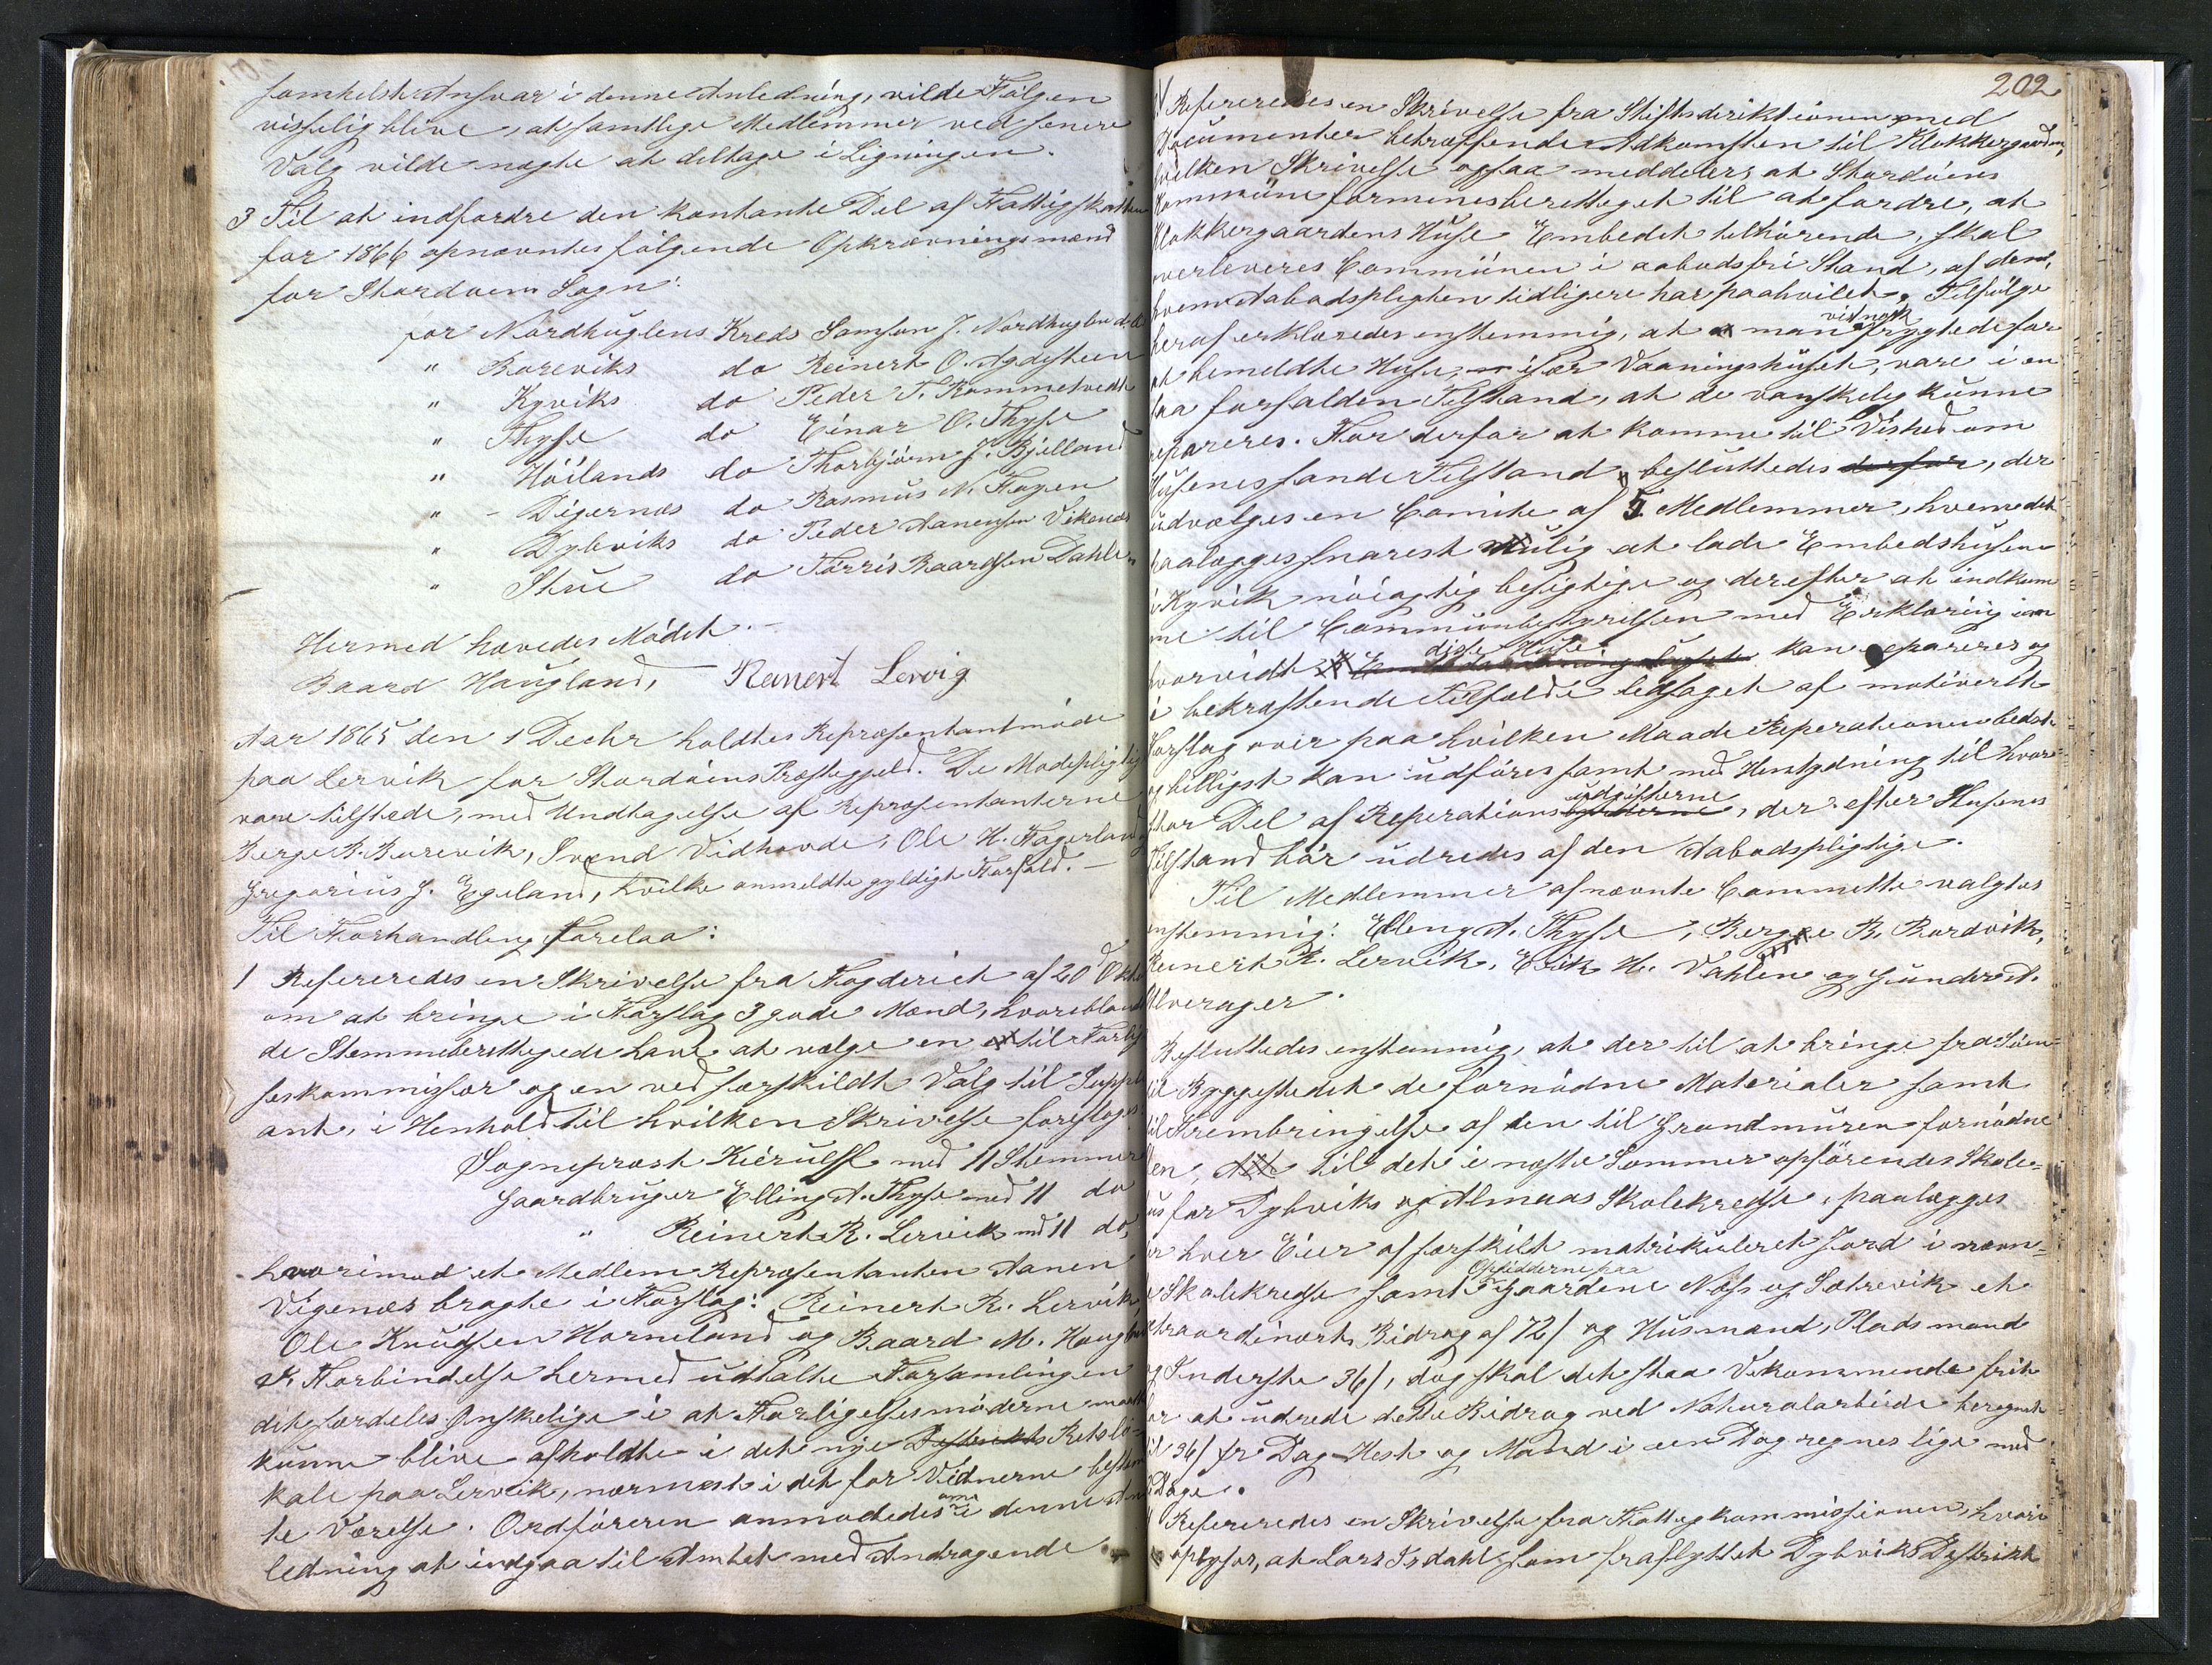 somhelst Ansvar i denne Anledning, vilde Følgen
visselig blive, at samtlige Medlemmer ved senere
Valg vilde nægte at deltage i Ligningen.
3 Til at indfordre den kontante Del af Fattigskatten
for 1866 opnævntes følgende Opkrævningsmænd
for Stordøens Sogn:
for Nordhuglens Kreds Samson J. Nordhuglen
" Boreviks do Reinert O. Agdesteen
" Kyviks do Peder T. Rommetvedt
" Thyse do Einar O. Thyse
" Höilands do Thorbjörn J. Bjelland
" Digernæs do Rasmus N. Hagen
" Dybviks do Peder Aanensen Vikenæs
" Stue do Tørris Baardsen Dahle
Hermed hævedes Mödet.
Baard Haugland, Reinert Lervig
Aar 1865 den 1 Decbr holdtes Repræsentantmöde
paa Lervik for Stordöens Præstegjeld. De Modepligtig
vare tilstæde, med Undtagelse af Repræsentanterne
Berge B. Borevik, Svend Vidhovde, Ole H. Fagerland
Gregorius J. Egeland, hvilke anmeldte gyldigt Forfald.
Til Forhandling forelaa:
1 Refereredes en Skrivelse fra Fogderiet af 20d Okt
om at bringe i Forslag 3 gode Mænd, hvoriblandt
de Stemmeberettigede have at vælge en til Forlig
seskommissær og en ved særskildt Valg til Supple
ant, i Henhold til hvilken Skrivelse foresloges:
Sogneprest Kierulff med 11 Stemmer
Gaardbruger Elling A. Thyse med 11 do
" Reinert R. Lervik md 11 do,
hvorimod et Medlem Repræsentanten Aanen
Vigenæs bragte i Forslag: Reinert R. Lervik,
Ole Knudsen Horneland og Baard M. Haugland
I Forbindelse hermed udtalte Forsamlingen
det særdeles Ønskelige i at Forligelsesmöderne maatte
kunne blive afholdte i det nye Distrikts Retslo-
kale paa Lervik, nærmest i det for Vidnerne bestem
te Værelse. Ordföreren anmodedes om i denne An
ledning at indgaa til Amtet med Andragende.
202
Refereredes en Skrivelse fra Stiftsdirektionen med
Documenter betræffende Adkomsten til Klokkergaarden,
hvilken Skrivelse ogsaa meddeler, at Stordöens
Kommune formenes berettiget til at fordre, at
Klokkergaardens Huse Embedet tilhörende, skal
overleveres Communen i aabodsfri Stand, af den,
hvem Aabodspligten tidligere har paahvilet. Tilfölge
heraf erklæredes enstemmig, at man vidnok frygtede for
at bemeldte Huse, især Vaaningshuset, vare i en
saa forfalden Tilstand, at de vanskelig kunne
repareres. For derfor at komme til Vished om
Husenes sande Tilstand, besluttedes derfor, der
udvælges en Comite af 5 Medlemmer, hvem det
paalægges snarest mulig at lade Embedshusene
i Kyvik nöiagtig besigtige og derefter at indkom
me til Communbestyrelsen med Erklæring om
hvorvidt disse Huse kan repareres og
i bekræftende Tilfælde ledsaget af motiveret
Forslag over paa hvilken Maade Reperationen bedst
og billigst kan udföres samt med Hentydning til hvor-
stor Del af Reperationsudgifterne, der efter Husenes
Tilstand bör udredes af den Aabodspligtige.
Til Medlemmer af nævnte Committe valgtes
enstemmig: Elling A. Thyse, Berge B. Bordvik,
Reinert R. Lervik, Erik H. Vahlen og Gunder A.
Alverager.
Besluttedes enstemmig, at der til at bringe fra Söen-
til Byggestedet de fornödne Materialer samt
til Frembringelse af den til Grundmuren fornödne
en, til det i næste Sommer opförendes Skole-
us for Dybviks og Almaas Skolekredse, paalægges
hver Eier af særskilt matrikuleret Jord i nævn-
Skolekredse samt Opsidderne paa Gaardene Næss og Sætrevik et
extraordinært Bidrag af 72/ og Husmænd, Pladsmænd
og Inderste 36/, dog skal det staa Vekommende frit
for at udrede dette Bidrag ved Naturalarbeide beregnet
til 36/ pr Dag. Hest og Mand i een Dag regnes lige med
2 Dage.
Refereredes en Skrivelse fra Fattigkommissionen, hvori
oplyses, at Lars Isdahl som fraflyttet Dybviks Distrikt